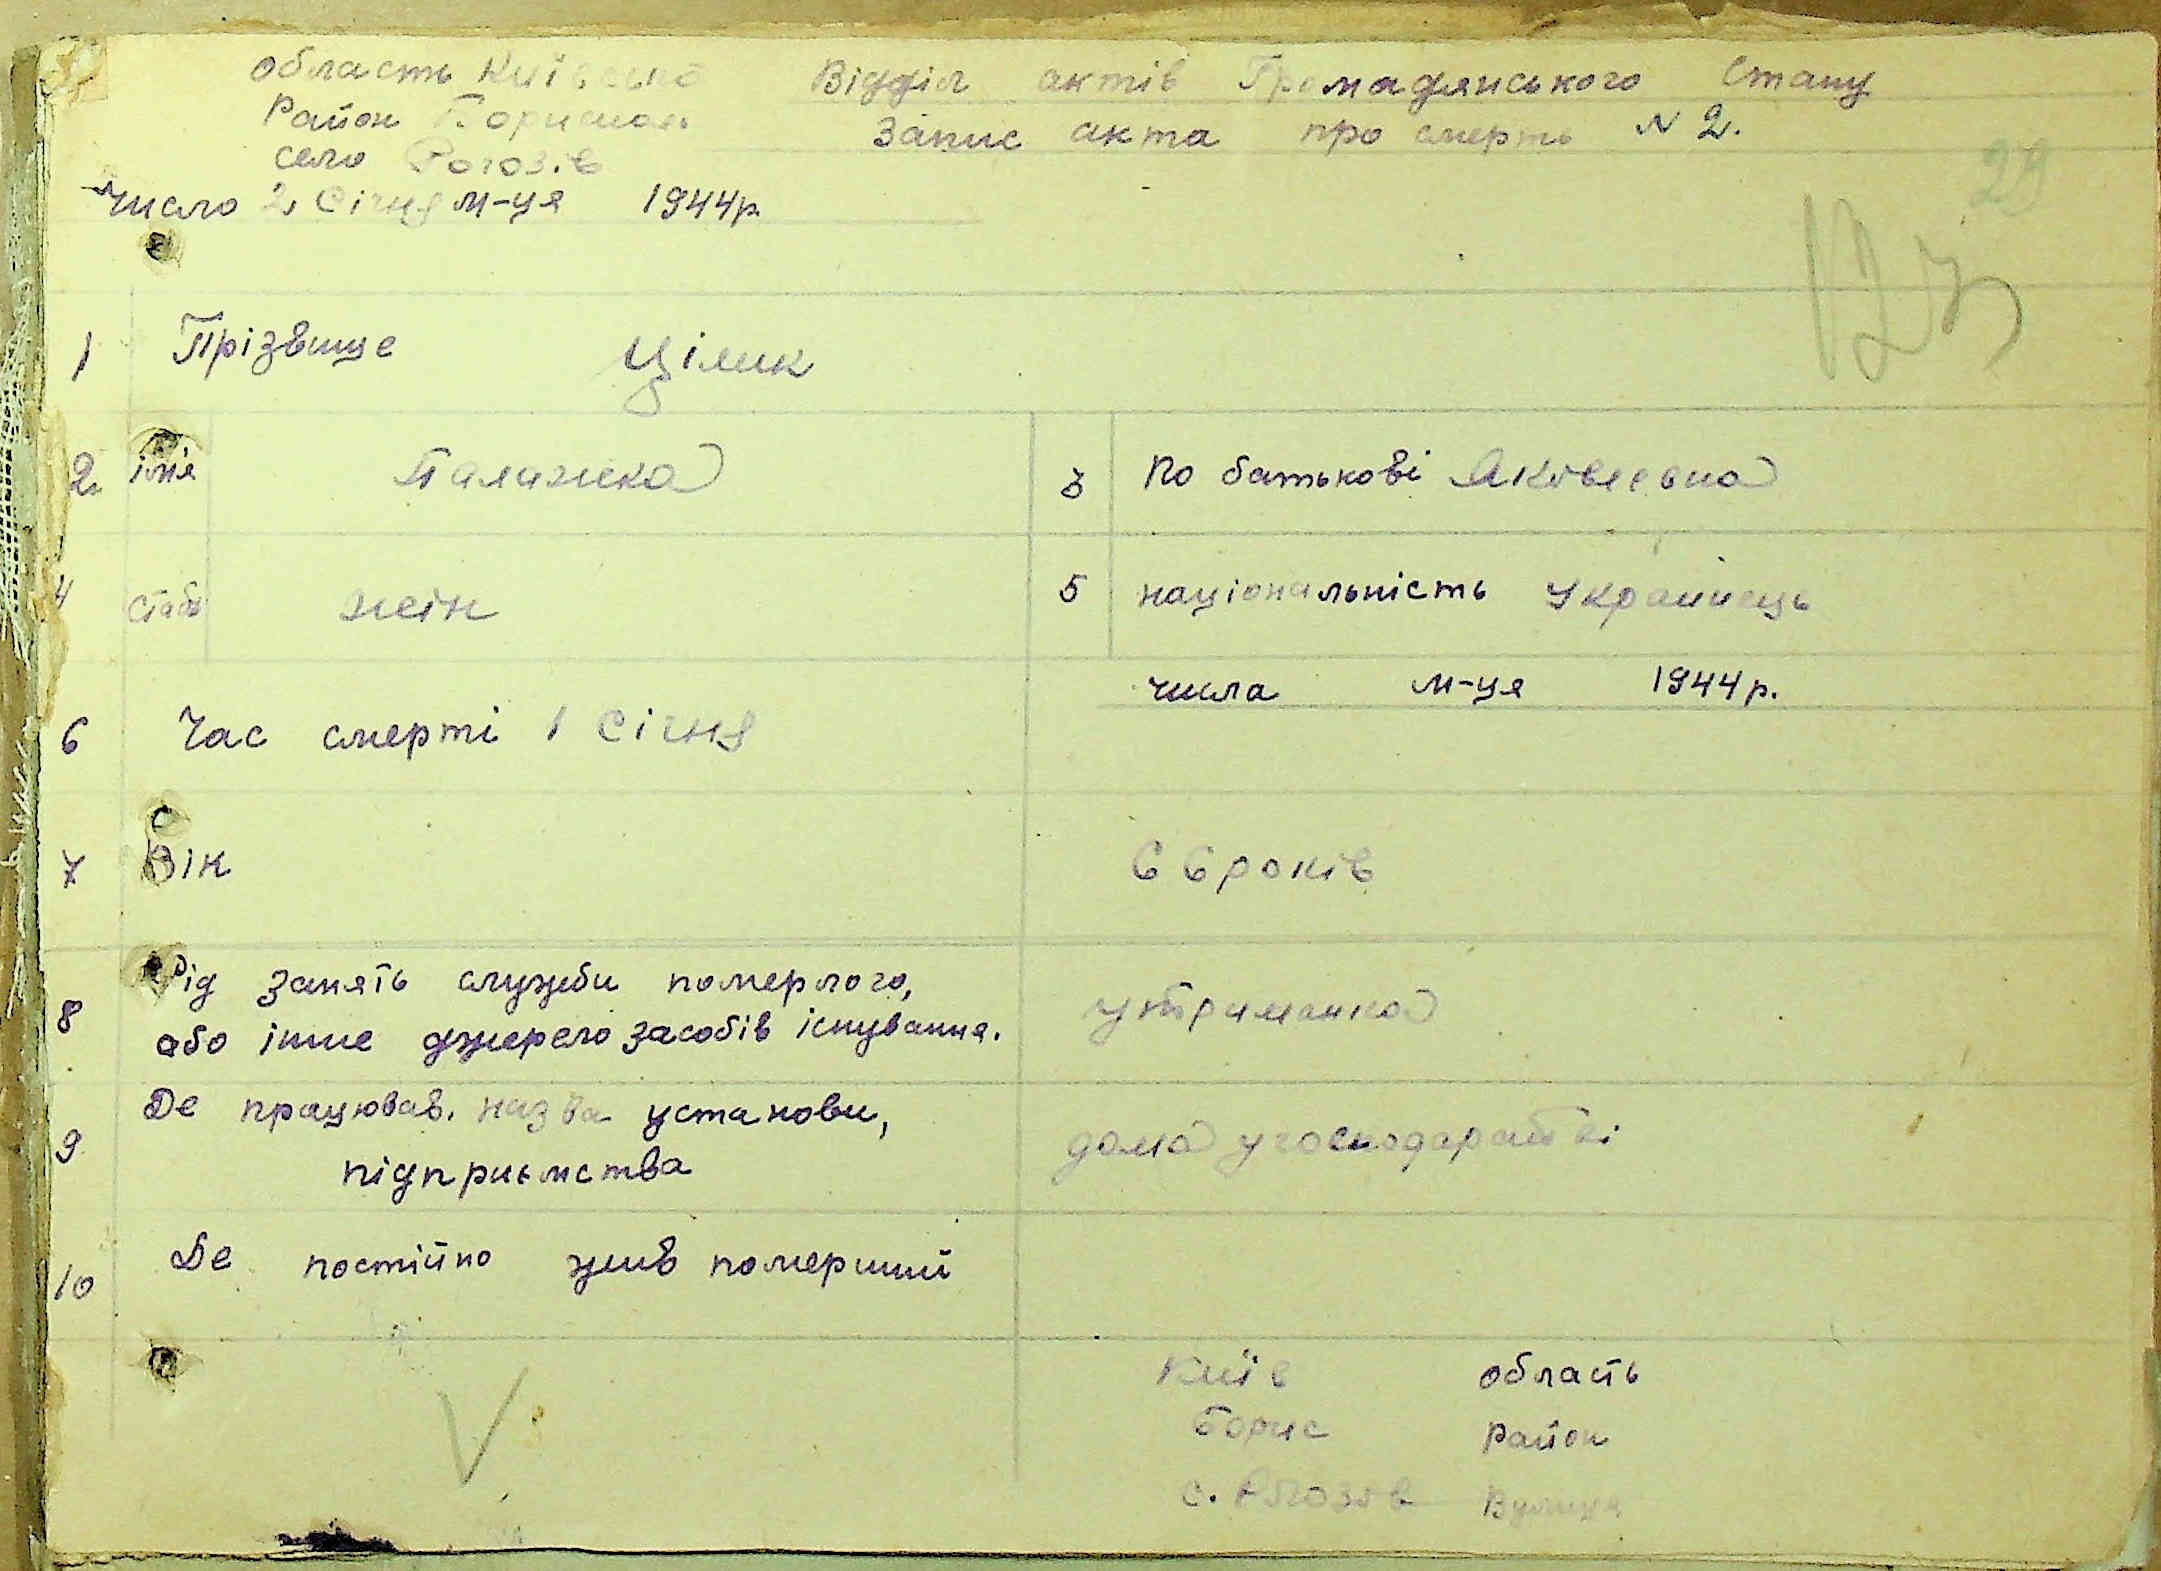 Область Київська Відділ актів Громадянського Стану
Район Борисполь Запис акта про смерть № 2.
село Рогозів
Число 2 Січня м-ця 1944р.
29
123
1 Прізвище Цілик
2 ім'я Палажка 3 По батькові Яковлевна
4 Стать жін 5 національність Українець
числа м-ця 1944р.
6 Час смерті 1 Січня
7 Вік 66 років
8 Рід занять служби померлого, утриманка
або інше джерело засобів існування.
9 Де працював. назва установи, дома у господарстві
підприємства
10 Де постійно жив померший
Київ область
Борис Район
с. Рогозів Вулиця